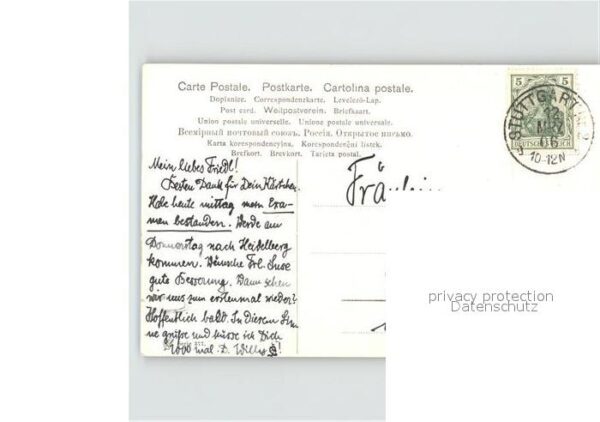 Carte Postale. Postkarte. Cartolina postale.
Dopisnice. Correspondenzkarte. Levelező-Lap.
Post card. Weltpostverein. Briefkaart.
Union postale universelle. Unione postale universale.
Всемірный почтовый союзъ. Россія. Открытое письмо.
Karta korespondencyjna. Korespondenční lístek.
Brefkort. Brevkort. Tarjeta postal.
5 5
STUTTGART
MRZ
06
10-12N
DEUTSCHES REICH
Mein liebes Friedl!
Besten Dank für Dein Kärtchen.
Habe heute mittag mein Exa-
men bestanden. Werde am
Donnerstag nach Heidelberg
kommen. Wünsche Frl.
gute Besserung. Wann sehen
wir uns zum erstenmal wieder?
Hoffentlich bald. In diesem Sin-
ne grüße und küsse ich Dich
1000 mal. D. Willy
Fräulein
privacy protection
Datenschutz